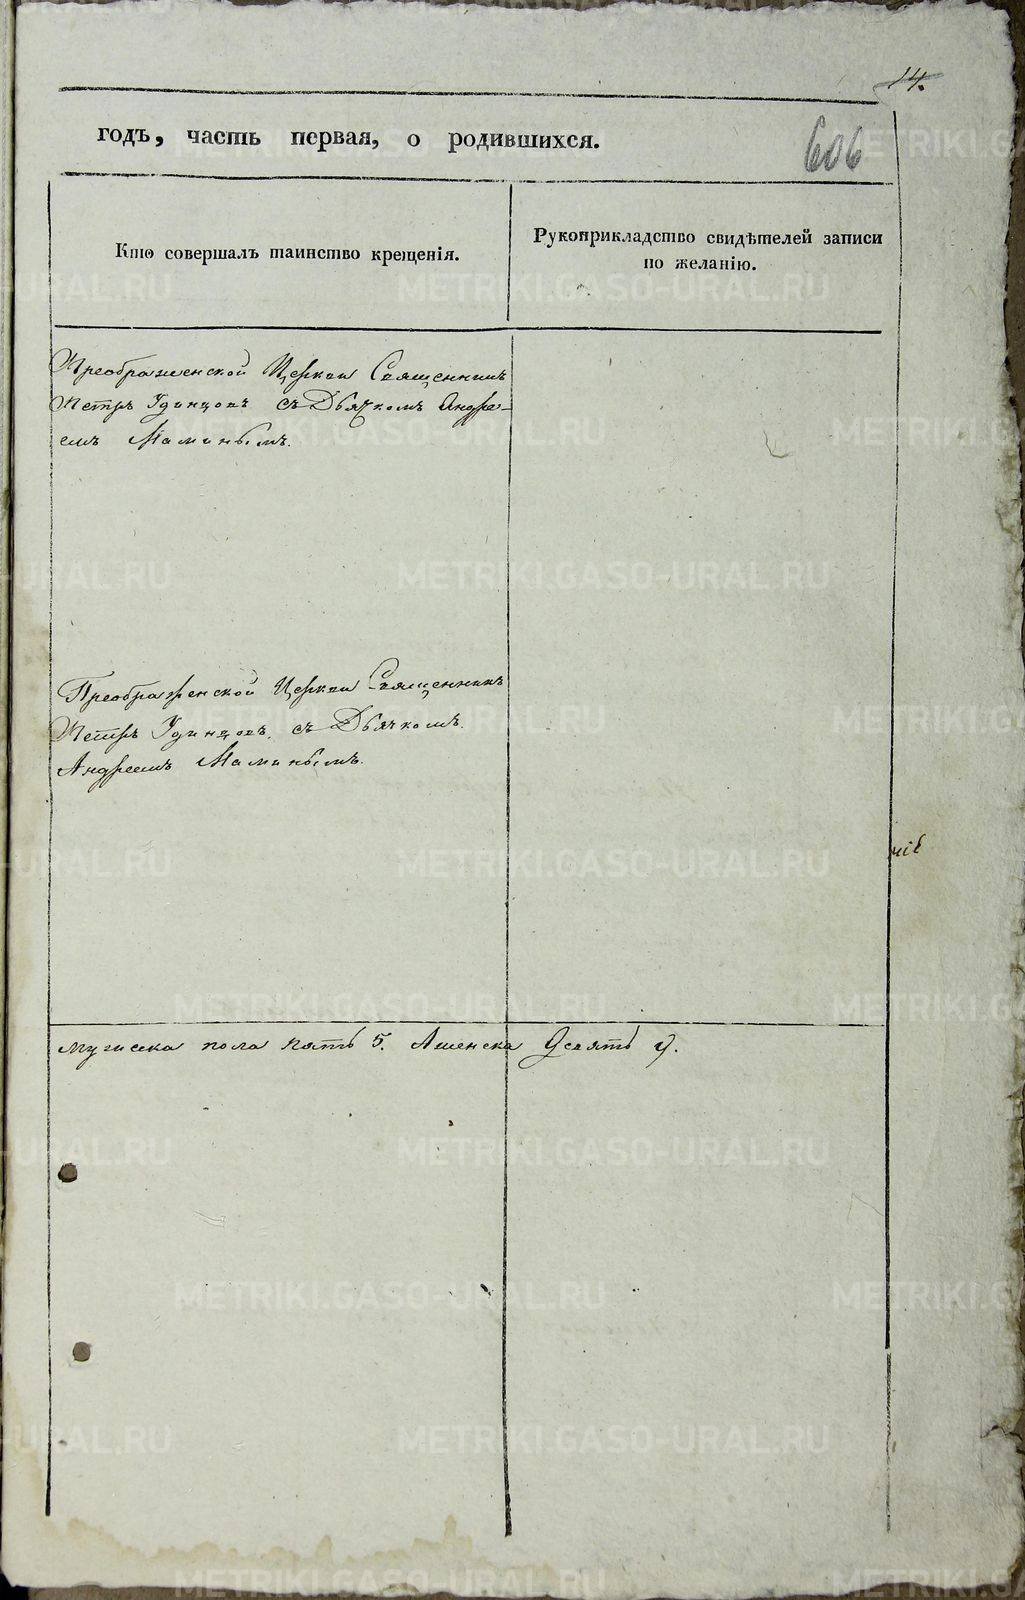 14.
годъ, часть первая, о родившихся.
606
Кто совершалъ таинство крещенія.
Рукоприкладство свидѣтелей записи
по желанію.
Преображенской Церкви Священникъ
Петръ Удинцовъ съ Дьячкомъ Андре-
емъ Маминымъ.
Преображенской Церкви Священникъ
Петръ Удинцовъ, съ Дьячкомъ
Андреемъ Маминымъ.
мужеска пола пять 5. А женска Девять 9.
METRIKI.GASO-URAL.RU